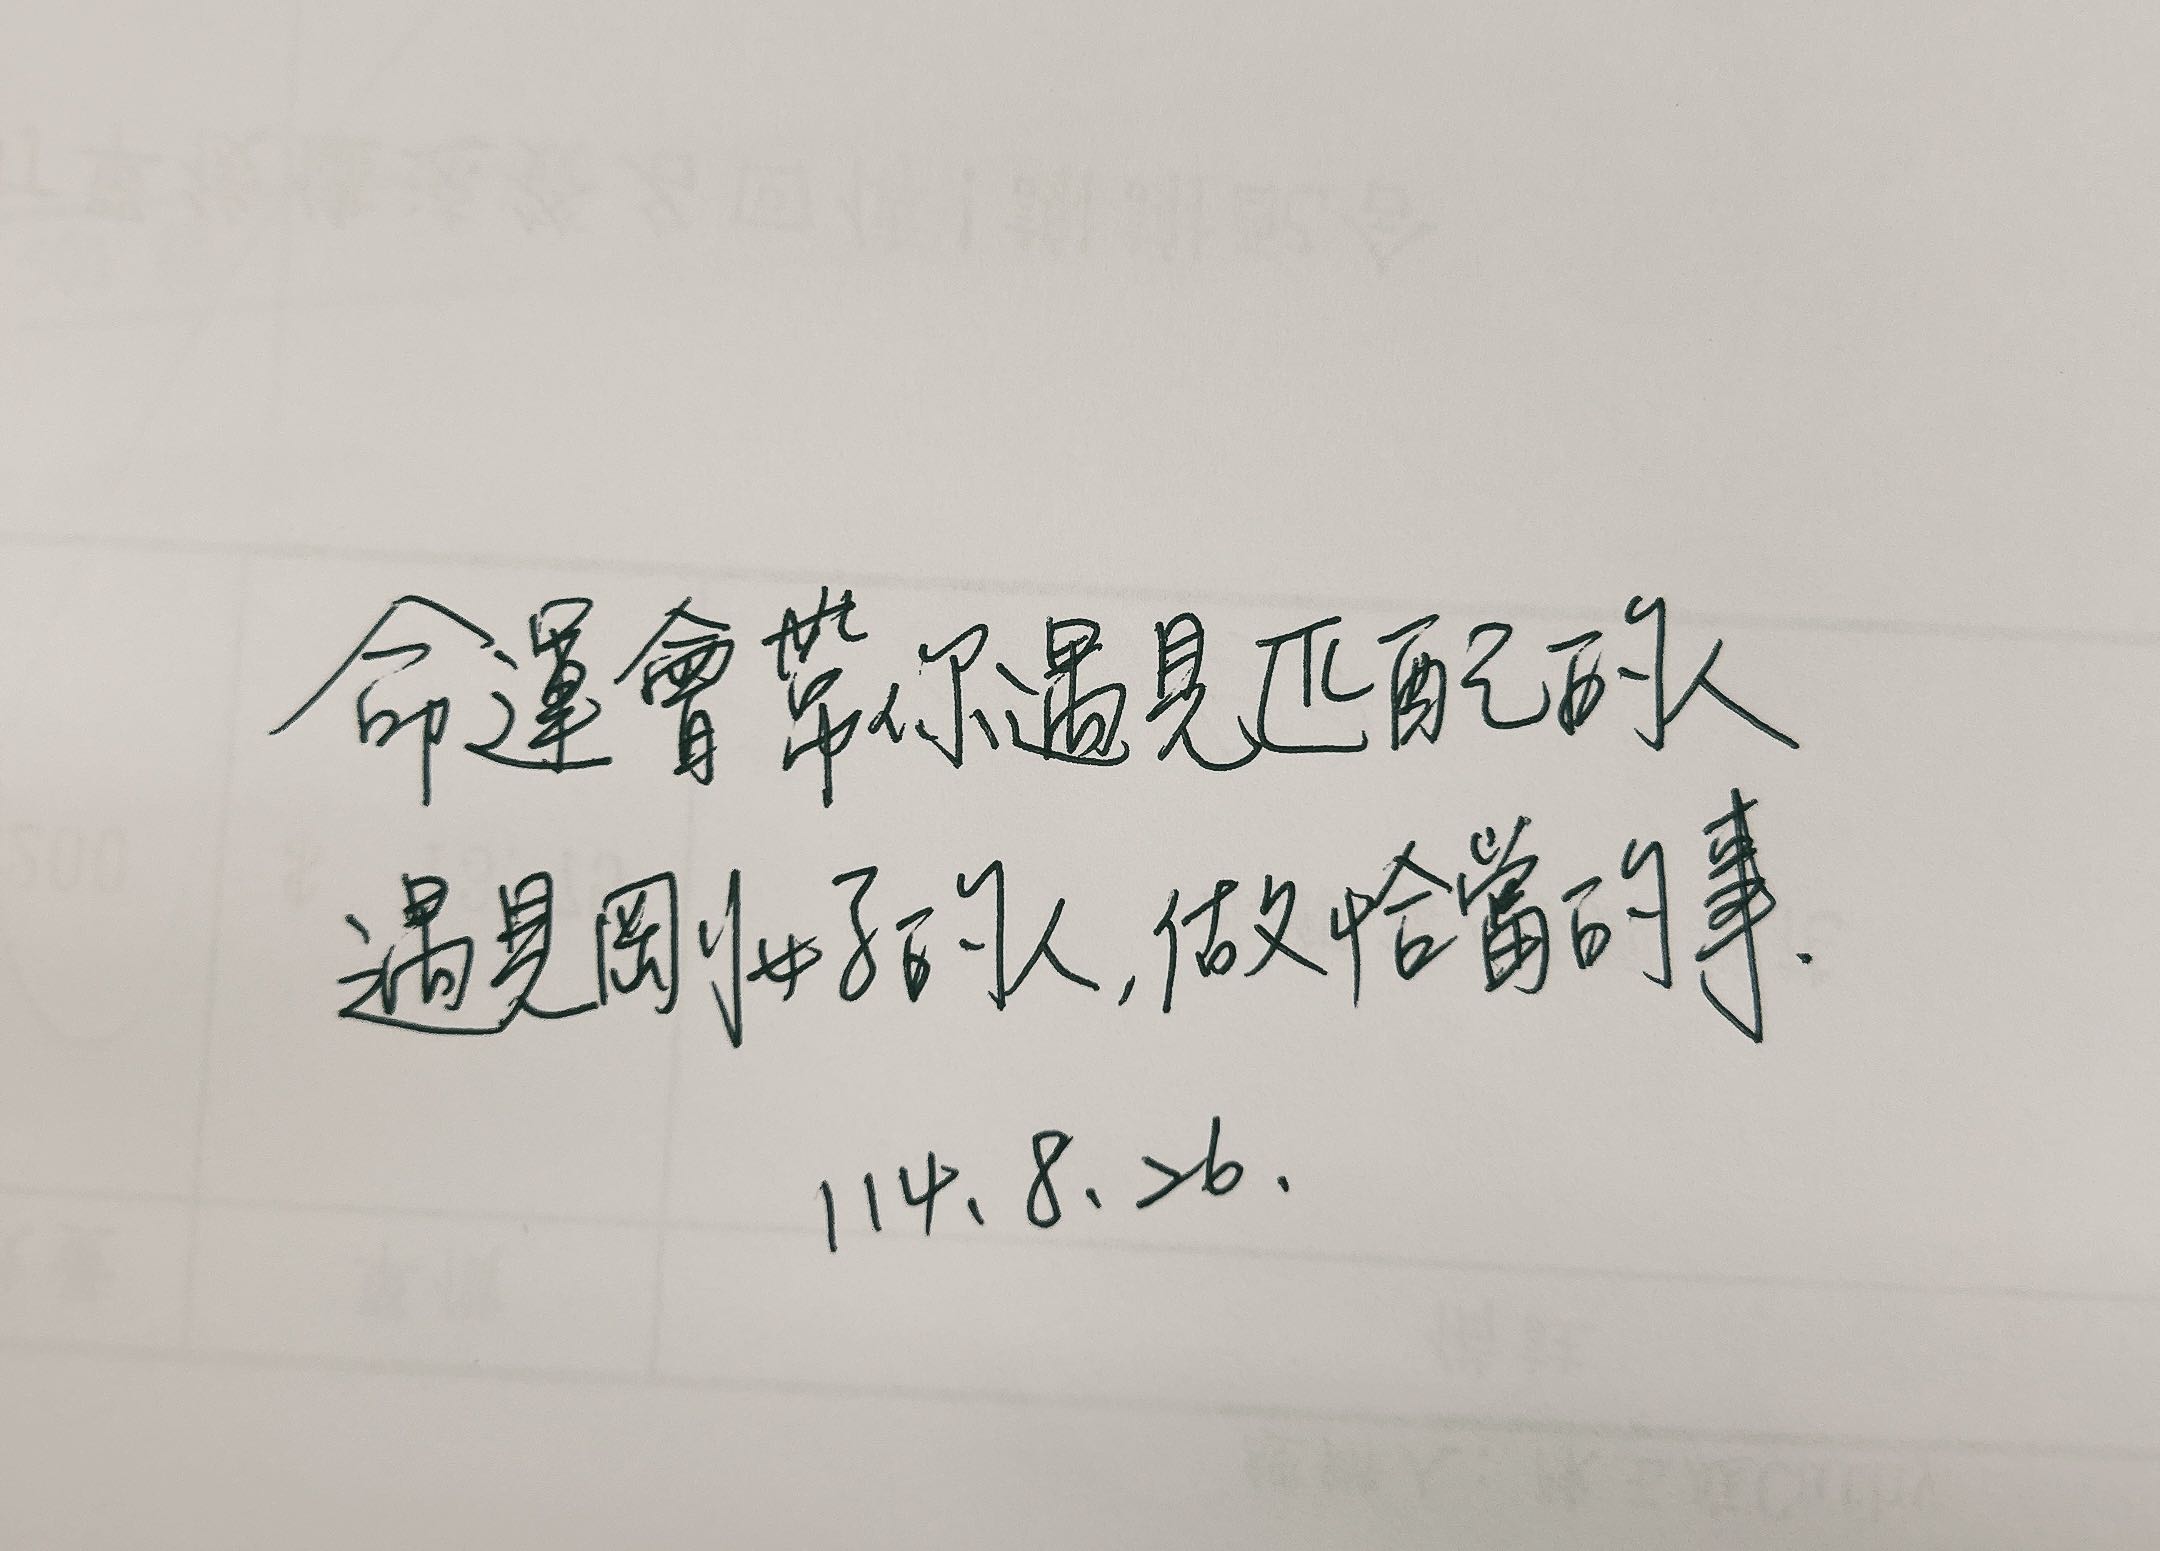 命運會帶你遇見匹配的人
遇見剛好的人,做恰當的事.
114、8、26.